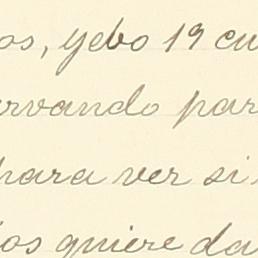 os, yebo 19 cu
rvando par
para ver si
ios quiere da